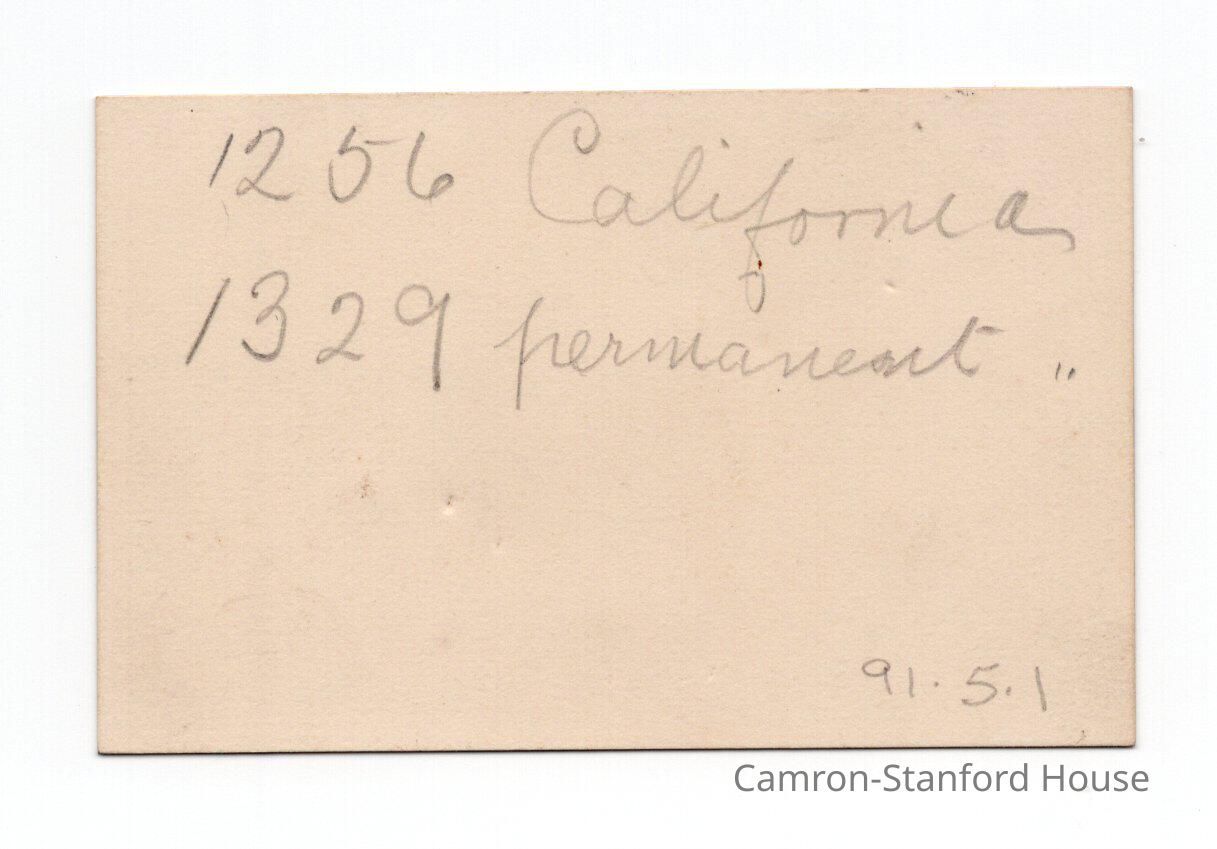 1256 California
1329 permanent "
91.5.1
Camron-Stanford House